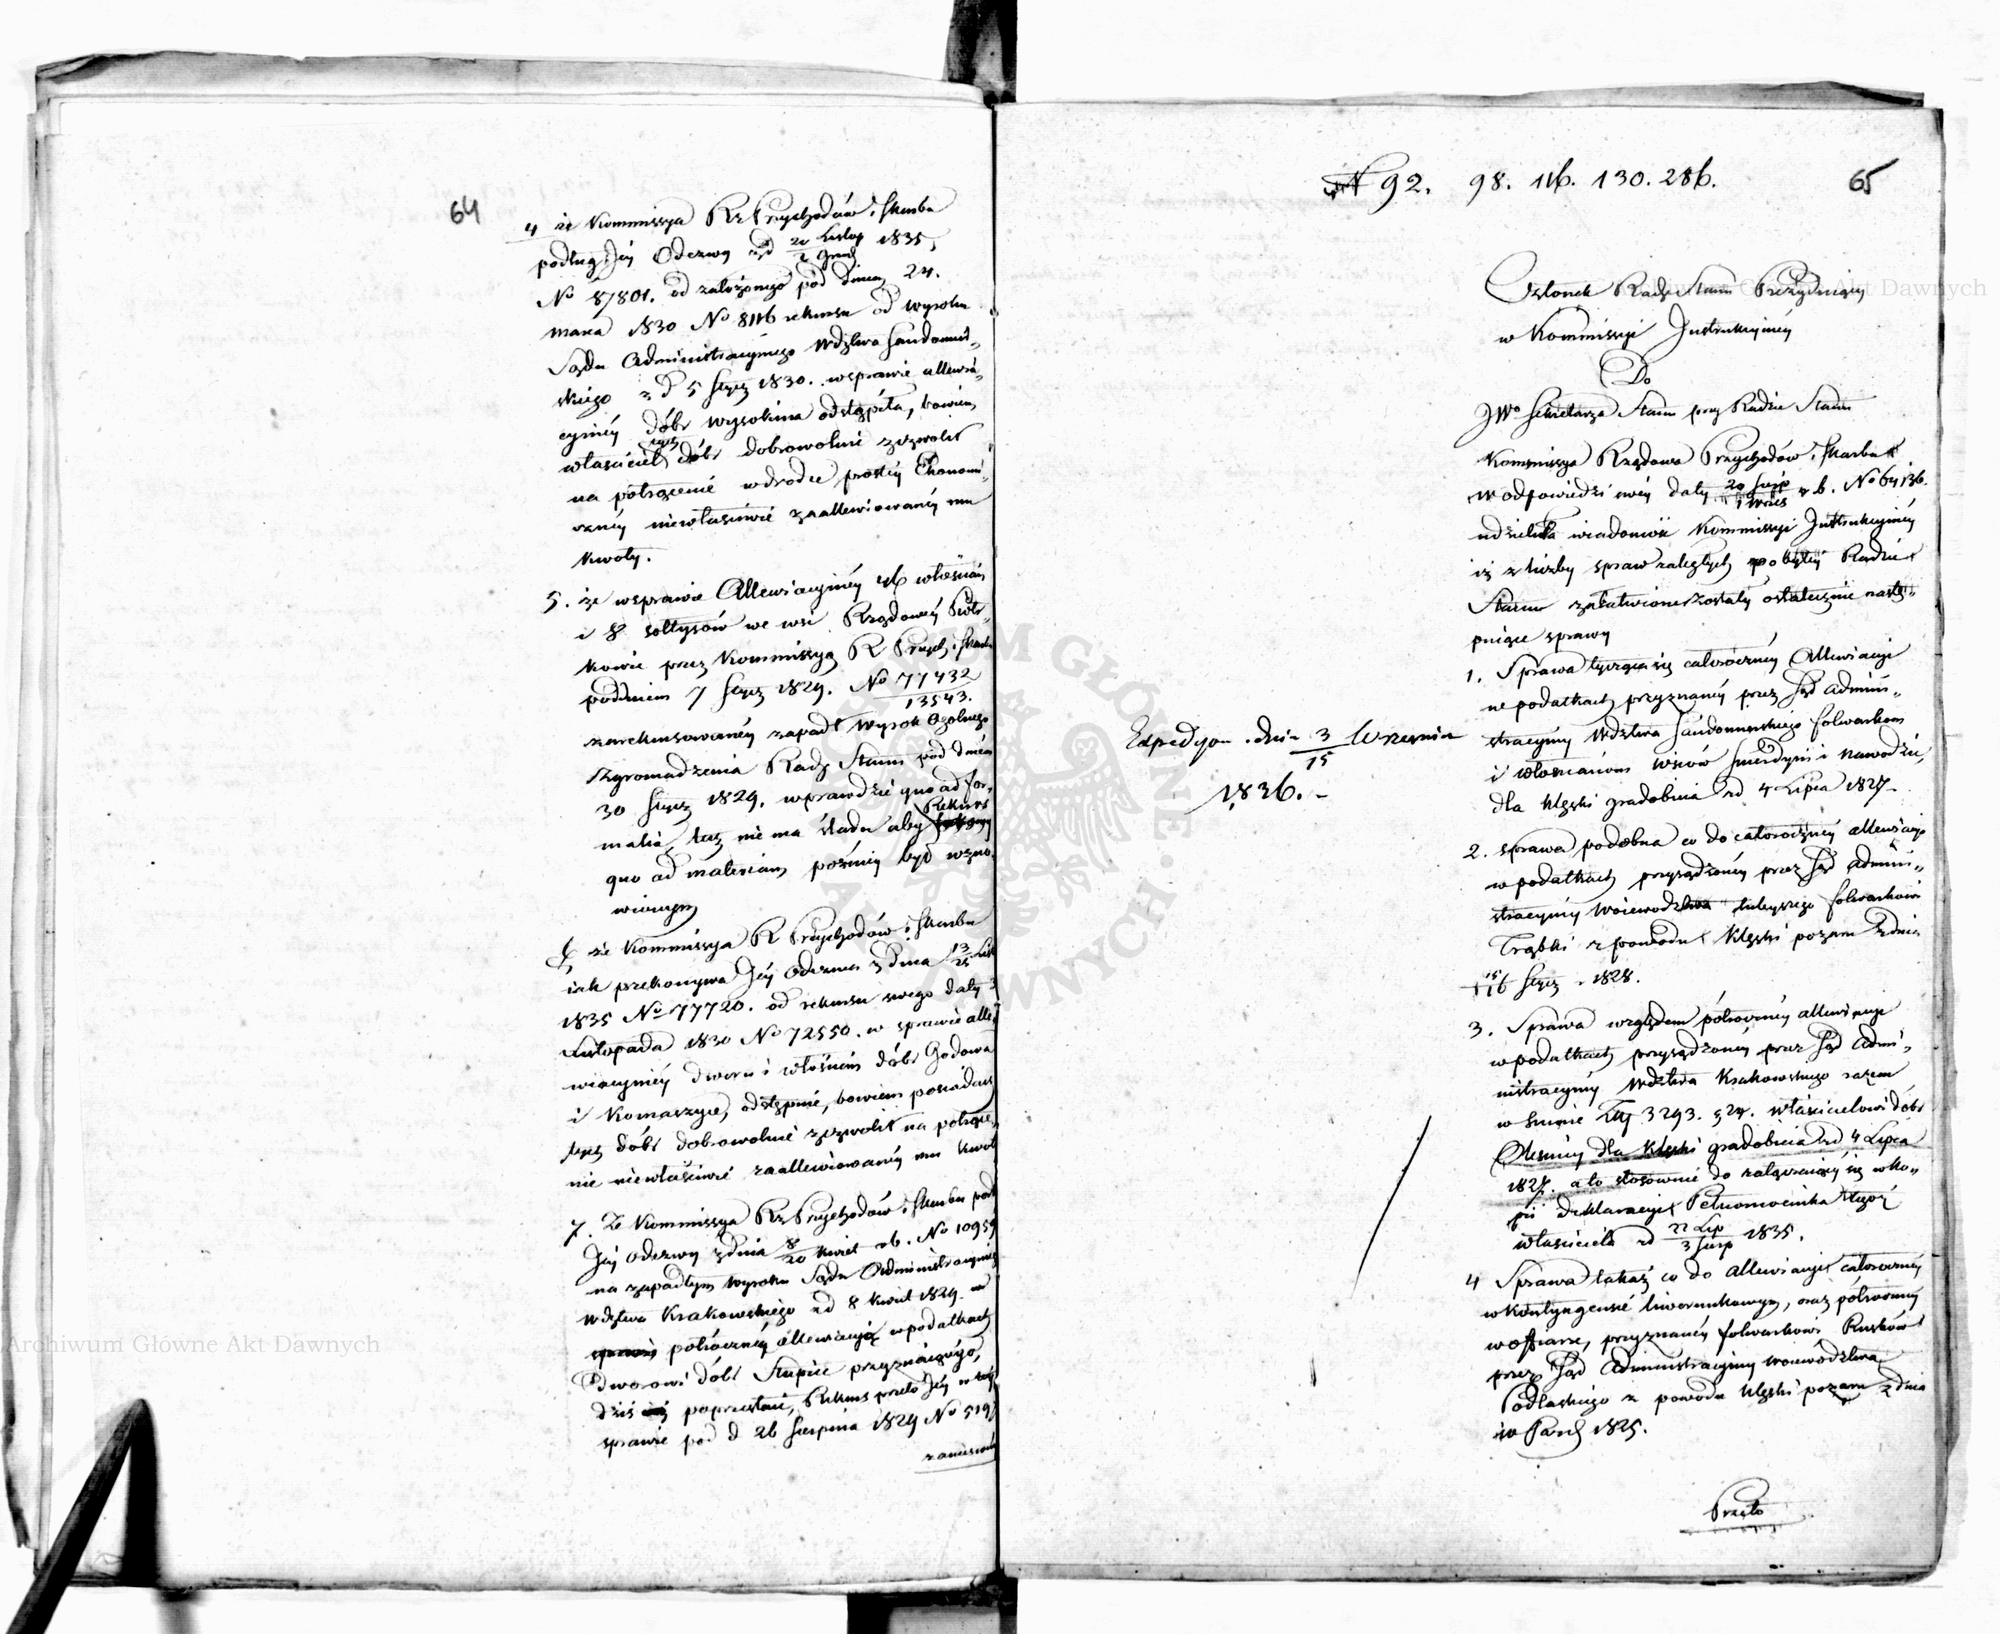 64
4 że Kommissya Rz Przychodów i Skarbu
podług Jéj Odezwy z d 20 Listop / 2 Grud 1835,
No 87801. od założonego pod dniem 24.
marca 1830 No 8116 rekursu od wyroku
Sądu Administracyjnego Wdztwa Sandomir„
skiego z d 5 Stycz 1830. w sprawie allewia„
cyjnéj dóbr Wysokina odstąpiła, bowiem
właściciel tych dóbr dobrowolnie zezwolił
na potrącenie w drodze prostéj Ekonomi„
cznéj niewłaściwie zaallewiowanéj mu
kwoty.
5. że w sprawie Allewiacyjnéj 46 włościan
i 8 sołtysów we wsi Rządowéj Piotr„
kowie przez Kommissyą R Przych i Skarbu
pod dniem 7 Stycz 1829. No 77432 / 13543.
zarekursowanéj zapadł Wyrok Ogólnego
Zgromadzenia Rady Stanu pod dniem
30 Stycz 1829. wprawdzie quo ad for„
malia, lecz nie ma śladu aby Rekurs
quo ad materiam później był wzno„
wionym
6 że Kommissya R Przychodów i Skarbu
jak przekonywa Jéj Odezwa z dnia 13/25 List
1835 No 77720. od rekursu swego daty 3
Listopada 1830 No 72550. w sprawie alle„
wiacyjnéj dworu i włościan dóbr Godowa
i Komaszyce, odstąpiła, bowiem posiadacz
tych dóbr dobrowolnie zezwolił na potrące„
nie niewłaściwie zaallewiowanéj mu kwoty
7. Że Kommissya Rz Przychodów i Skarbu podł
Jéj odezwy z dnia 8/20 Kwiet rb. No 10959
na zapadłym wyroku Sądu Administracyjnego
Wdztwa Krakowskiego z d 8 Kwiet 1829. w
półrocznéj allewiacyi w podatkach
Dworowi dóbr Słupice przyznającego,
dziś poprzestaje, Rekurs przeto Jéj w téj
sprawie pod d 26 Sierpnia 1829 No 5197
zaniesiony
No 92. 98. 116. 130. 286.
65
Członek Rady Stanu Prezydujący
w Kommissyi Instrukcyjnéj
Do
JWo Sekretarza Stanu przy Radzie Stanu
Kommissya Rządowa Przychodów i Skarbu
w odpowiedzi swéj daty 20 Sierp / 1 Wrześ r b. No 64136.
udzieliła wiadomość Kommissyi Instrukcyjnéj
iż z liczby spraw zaległych po byłéj Radzie
Stanu załatwione zostały ostatecznie nastę„
pujące sprawy
1. Sprawa tycząca się całorocznéj Allewiacyi
w podatkach przyznanéj przez Sąd Admini„
stracyjny Wdztwa Sandomirskiego folwarkom
i włościanom wsiów Smerdyni i Nawodzic,
dla klęski gradobicia z d 4 Lipca 1827.
2. Sprawa podobna co do całorocznéj allewiacyi
w podatkach przysądzonéj przez Sąd Admini„
stracyjny Wojewodztwa Lubelskiego folwarkowi
Trąbki z powodu klęski pożaru z dnia
15/16 Stycz 1828.
3. Sprawa względem półrocznéj allewiacyi
w podatkach przysądzonéj przez Sąd Admi„
nistracyjny Wdztwa Krakowskiego razem
w summie Złp 3293. g 24. właścicielowi dóbr
Olesnicy dla klęski gradobicia z d 4 Lipca
1827. a to stosownie do załączającéj się w ko„
pii deklaracyi Pełnomocnika tegoż
właściciela z d 22 Lip / 3 Sierp 1835.
4 Sprawa takaż co do Allewiacyi całorocznéj
w kontyngensie liwerunkowym, oraz półrocznéj
w ofiarze, przyznanéj folwarkowi Rusków
przez Sąd Administracyjny Województwa
Podlaskiego z powodu klęski pożaru z dnia
10 Paźd 1825.
Przeto
Expedyow. dnia 3/15 Września
1836.